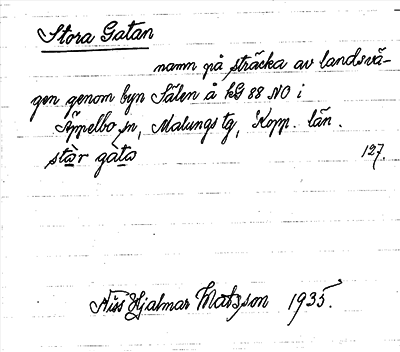 Stora Gatan
namn på sträcka av landsvä-
gen genom byn Sälen å kG 88 NO i
Äppelbo sn, Malungs tg, Kopp. län.
stòr gàta 127.
Niss Hjalmar Matsson 1935.